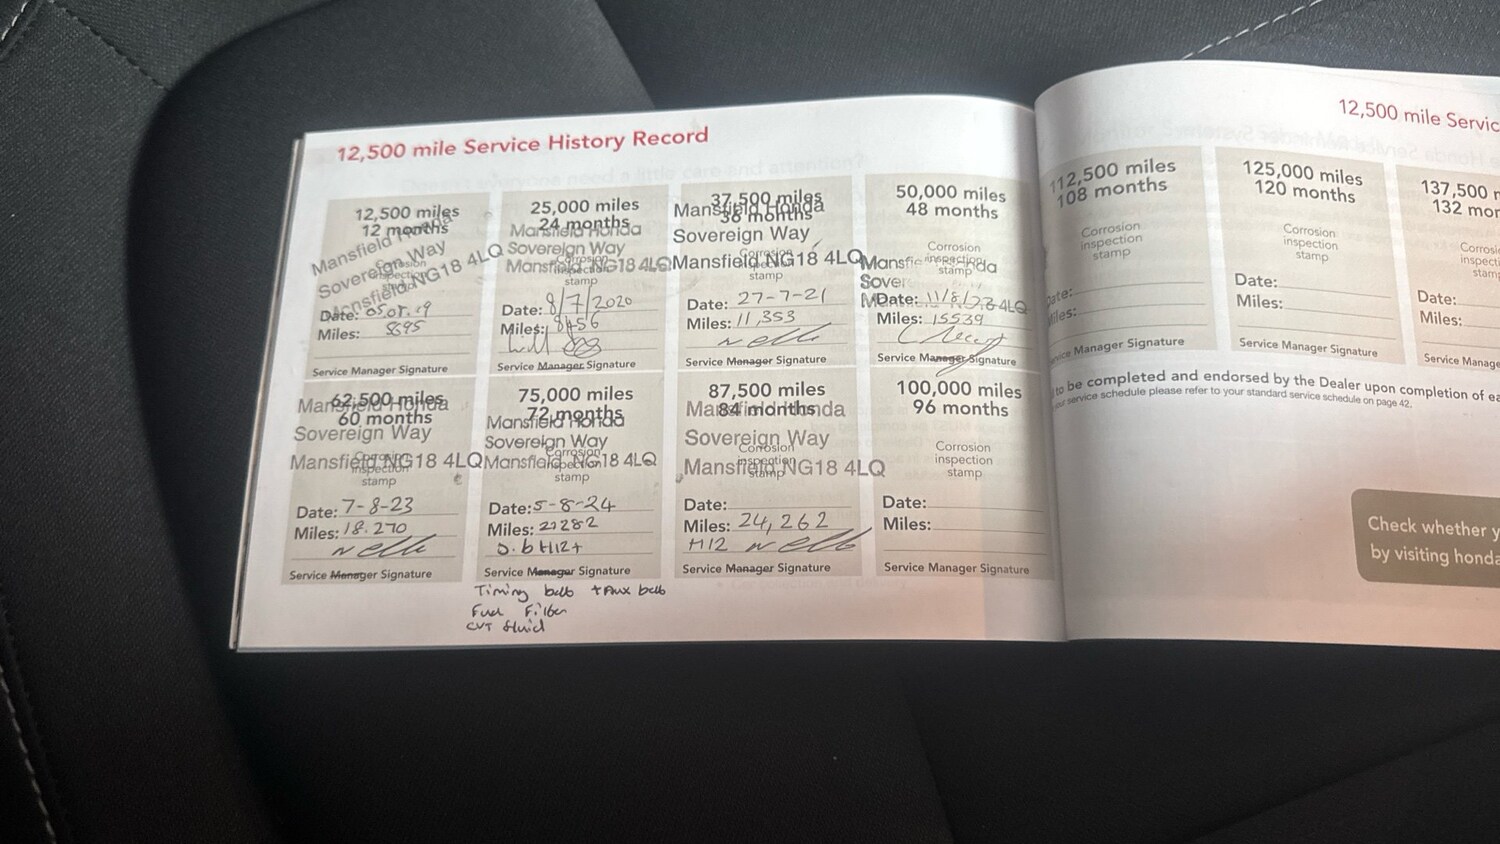 12,500 mile Service History Record
12,500 miles
12 months
Mansfield Honda
Sovereign Way
Mansfield NG18 4LQ
Corrosion
inspection
stamp
Date:
Miles: 8695
Service Manager Signature
25,000 miles
24 months
Mansfield Honda
Sovereign Way
Mansfield NG18 4LQ
Corrosion
inspection
stamp
Date: 8/7/2020
Miles: 8456
Service Manager Signature
37,500 miles
36 months
Mansfield Honda
Sovereign Way
Mansfield NG18 4LQ
Corrosion
inspection
stamp
Date: 27-7-21
Miles: 11,353
Service Manager Signature
50,000 miles
48 months
Corrosion
inspection
stamp
Date: 11/8/
Miles: 15539
Service Manager Signature
62,500 miles
60 months
Mansfield Honda
Sovereign Way
Mansfield NG18 4LQ
Corrosion
inspection
stamp
Date: 7-8-23
Miles: 18.270
Service Manager Signature
75,000 miles
72 months
Mansfield Honda
Sovereign Way
Mansfield NG18 4LQ
Corrosion
inspection
stamp
Date: 5-8-24
Miles: 21282
Service Manager Signature
Timing belt + Aux belt
Fuel Filter
CVT fluid
87,500 miles
84 months
Mansfield Honda
Sovereign Way
Mansfield NG18 4LQ
Corrosion
inspection
stamp
Date:
Miles: 24,262
H12
Service Manager Signature
100,000 miles
96 months
Corrosion
inspection
stamp
Date:
Miles:
Service Manager Signature
12,500 mile Servic
112,500 miles
108 months
Corrosion
inspection
stamp
ate:
Miles:
Manager Signature
125,000 miles
120 months
Corrosion
inspection
stamp
Date:
Miles:
Service Manager Signature
137,500 m
132 mon
Corrosi
inspecti
stam
Date:
Miles:
Service Manage
to be completed and endorsed by the Dealer upon completion of ea
service schedule please refer to your standard service schedule on page 42.
Check whether y
by visiting honda